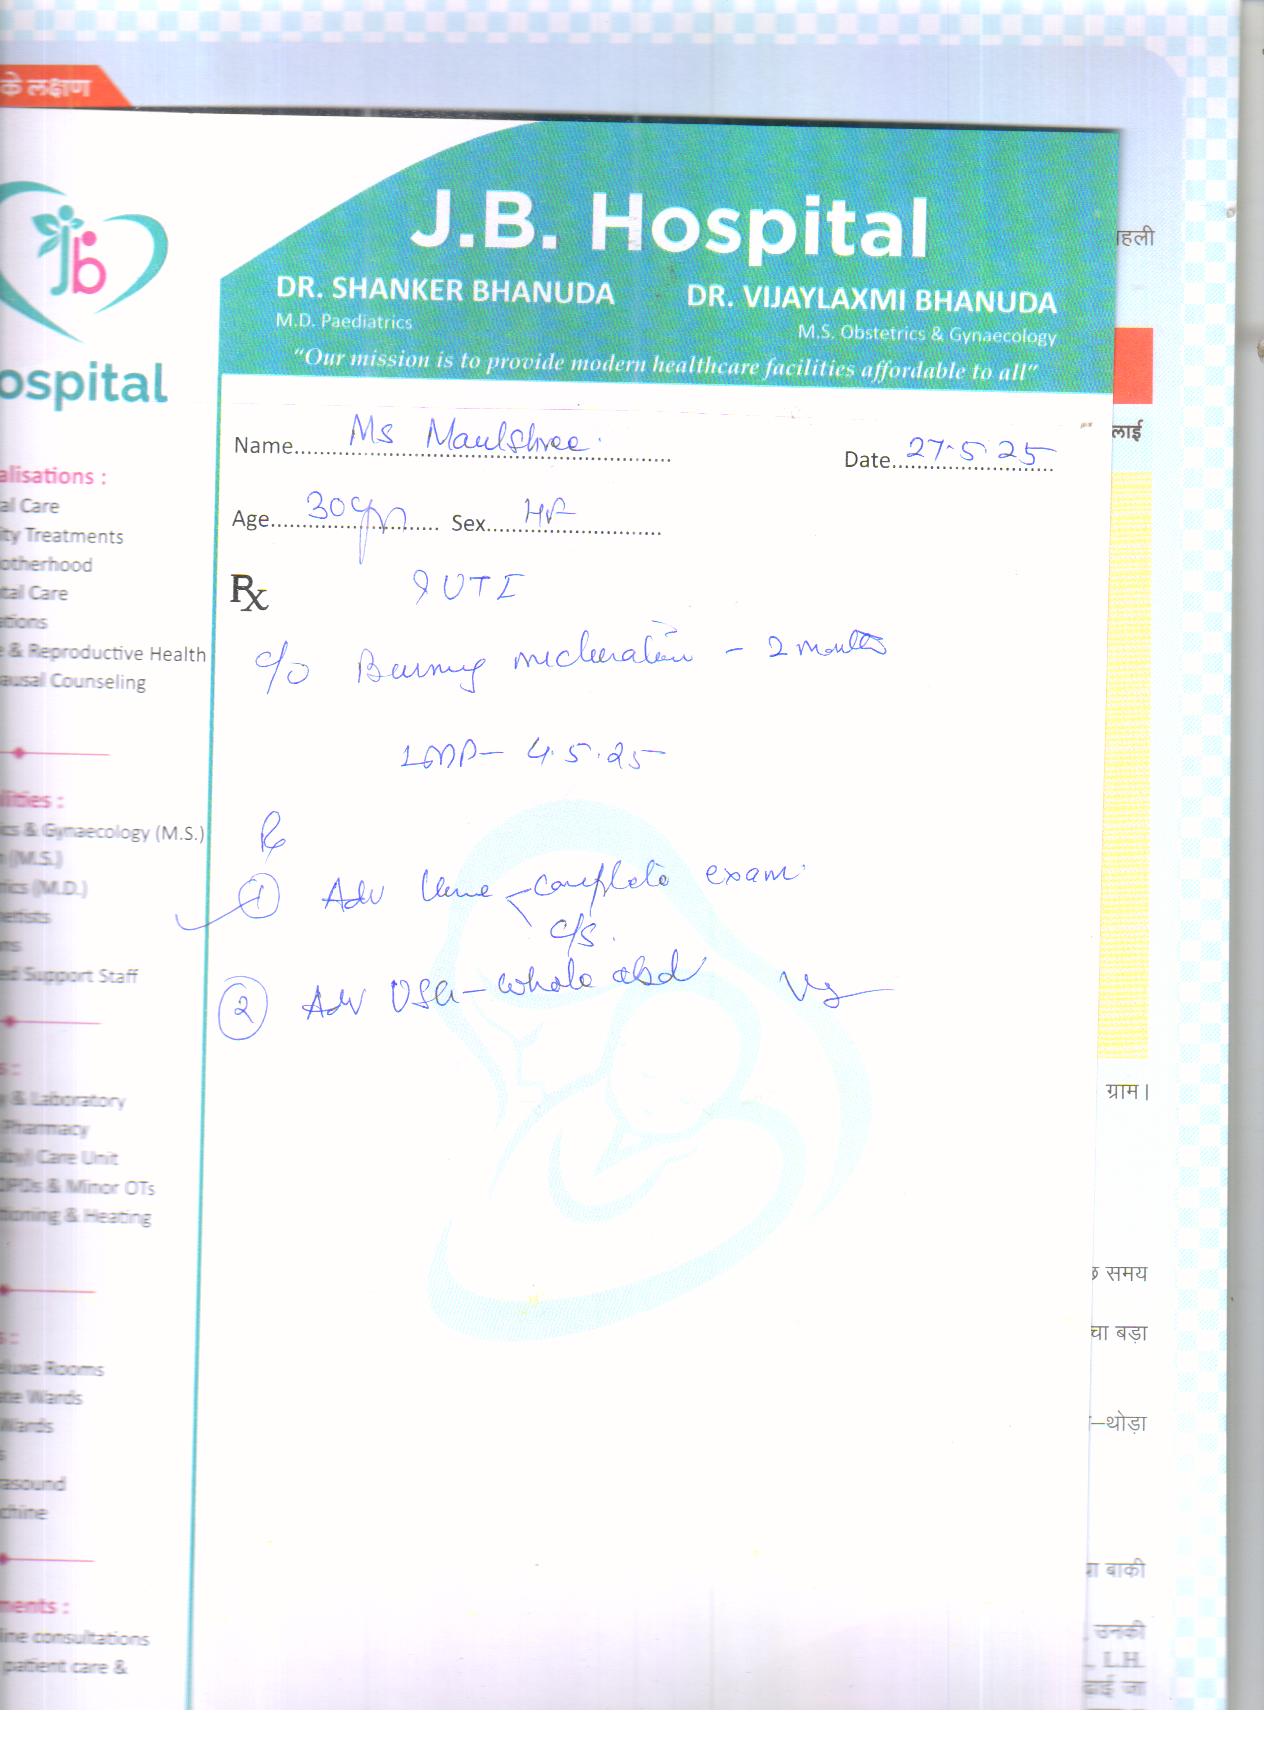 के लक्षण
J.B. Hospital
DR. SHANKER BHANUDA
M.D. Paediatrics
DR. VIJAYLAXMI BHANUDA
M.S. Obstetrics & Gynaecology
"Our mission is to provide modern healthcare facilities affordable to all"
Name Ms Maulshree.
Date 27.5.25
Age 30 Sex
Rx
UTI
c/o Burning micturation - 2 months
LMP- 4.5.25
Rx
1 Adv Urine - complete exam
c/s.
2 Adv USG - whole abd
jb
ospital
alisations :
al Care
ity Treatments
otherhood
tal Care
ations
e & Reproductive Health
ausal Counseling
lities :
ics & Gynaecology (M.S.)
(M.S.)
rics (M.D.)
ed Support Staff
y & Laboratory
Pharmacy
aby) Care Unit
OPDs & Minor OTs
tioning & Heating
eluxe Rooms
ate Wards
Wards
rasound
chine
ments :
line consultations
patient care &
हली
लाई
ग्राम।
समय
चा बड़ा
–थोड़ा
बाकी
उनकी
L.H.
ढाई जा